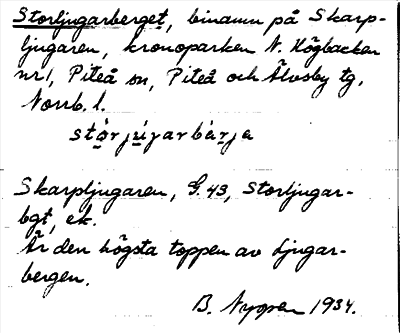 Storljugarberget, binamn på Skarp-
ljugaren, kronoparken N. Högbacken
nr 1, Piteå sn, Piteå och Älvsby tg,
Norrb. l.
stórjúgarbárja
Skarpljugaren, G. 43, Storljugar-
bgt, ek.
Är den högsta toppen av Ljugar-
bergen.
B. Nyppen 1934.